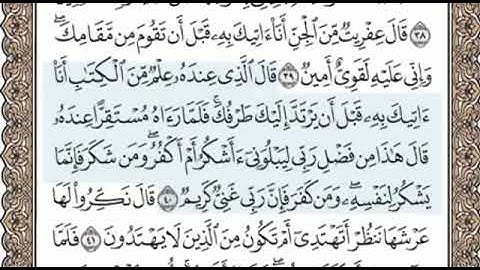 ٣٨ قَالَ عِفْرِيتٌ مِّنَ ٱلْجِنِّ أَنَا۠ ءَاتِيكَ بِهِۦ قَبْلَ أَن تَقُومَ مِن مَّقَامِكَ ۖ
وَإِنِّى عَلَيْهِ لَقَوِىٌّ أَمِينٌ ٣٩ قَالَ ٱلَّذِى عِندَهُۥ عِلْمٌ مِّنَ ٱلْكِتَٰبِ أَنَا۠
ءَاتِيكَ بِهِۦ قَبْلَ أَن يَرْتَدَّ إِلَيْكَ طَرْفُكَ ۚ فَلَمَّا رَءَاهُ مُسْتَقِرًّا عِندَهُۥ
قَالَ هَٰذَا مِن فَضْلِ رَبِّى لِيَبْلُوَنِىٓ ءَأَشْكُرُ أَمْ أَكْفُرُ ۖ وَمَن شَكَرَ فَإِنَّمَا
يَشْكُرُ لِنَفْسِهِۦ ۖ وَمَن كَفَرَ فَإِنَّ رَبِّى غَنِىٌّ كَرِيمٌ ٤٠ قَالَ نَكِّرُوا۟ لَهَا
عَرْشَهَا نَنظُرْ أَتَهْتَدِىٓ أَمْ تَكُونُ مِنَ ٱلَّذِينَ لَا يَهْتَدُونَ ٤١ فَلَمَّا